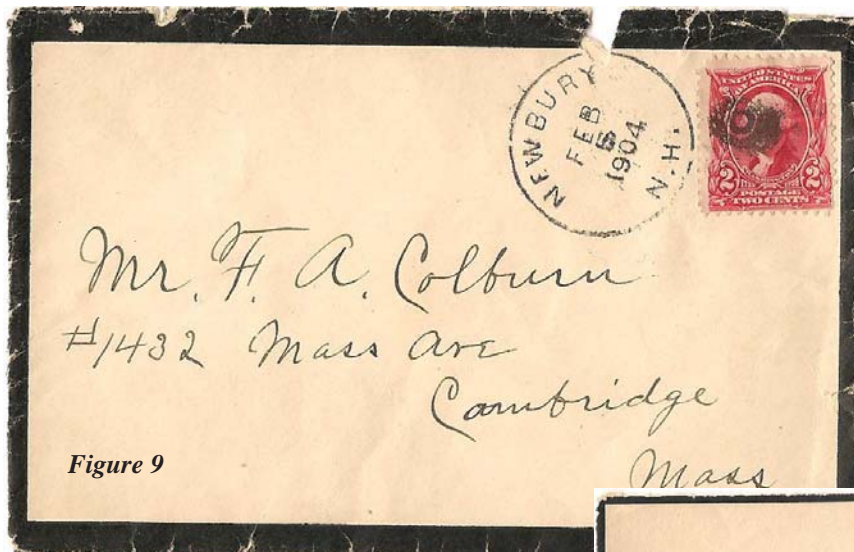 NEWBURY N.H.
FEB
5
1904
UNITED STATES
OF AMERICA
2 2
POSTAGE
TWO CENTS
Mr. F. A. Colburn
#1432 Mass Ave
Cambridge
Mass
Figure 9